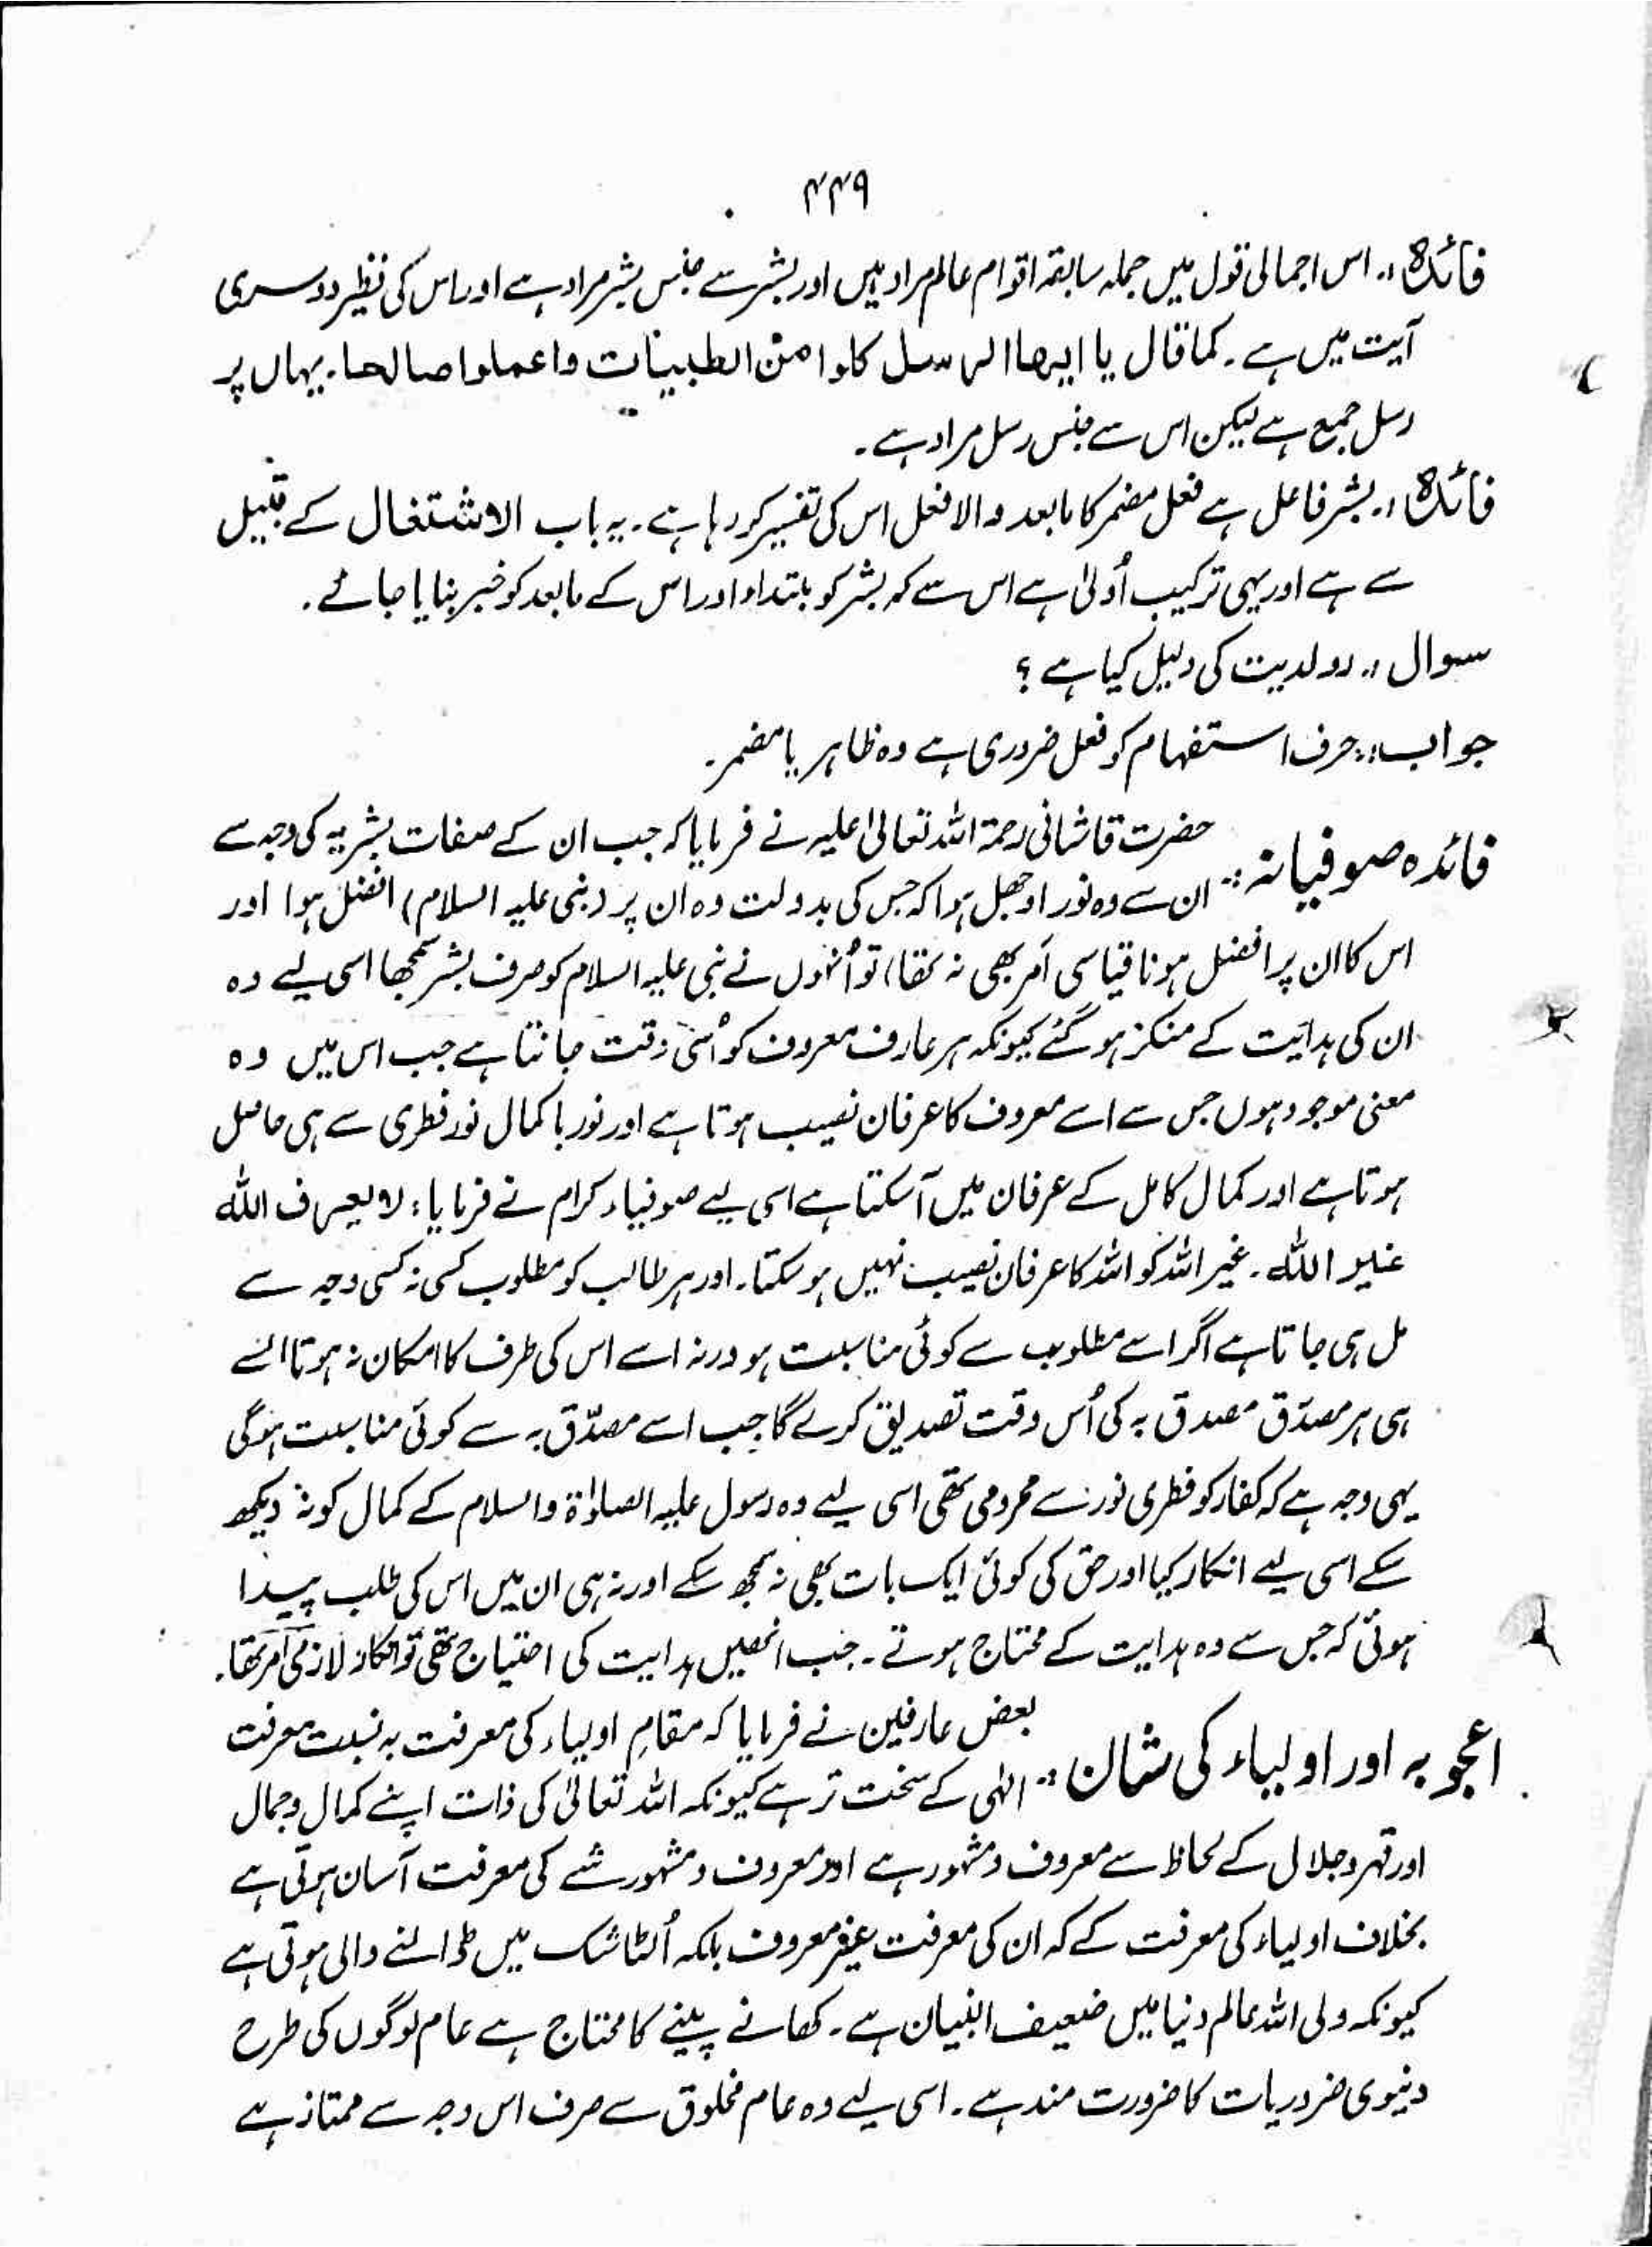 ۴۴۹
فائدہ :۔ اس اجمالی قول میں جملہ سابقہ اقوام عالم مراد ہیں اور بشر سے جنس بشر مراد ہے اور اس کی نظیر دوسری
آیت میں ہے ۔ کما قال یا ایھا الرسل کلوا من الطیبات واعملوا صالحا ۔ یہاں پر
رسل جمع ہے لیکن اس سے جنس رسل مراد ہے ۔
فائدہ :۔ بشر فاعل ہے فعل مضمر کا مابعد والا فعل اس کی تفسیر کر رہا ہے ۔ یہ باب الاشتغال کے قبیل
سے ہے اور یہی ترکیب اُولیٰ ہے اس سے کہ بشر کو ابتداء اور اس کے مابعد کو خبر بنایا جائے ۔
سوال :۔ اولدیت کی دلیل کیا ہے ؟
جواب :۔ حرف استفہام کو فعل ضروری ہے وہ ظاہر یا مضمر ۔
فائدہ صوفیانہ :۔ حضرت قاشانی رحمۃ اللہ تعالیٰ علیہ نے فرمایا کہ جب ان کے صفات بشریہ کی وجہ سے
ان سے وہ نور اوجھل ہوا کہ جس کی بدولت وہ ان پر (نبی علیہ السلام) افضل ہوا اور
اس کا ان پر افضل ہونا قیاسی اَمر بھی نہ تھا) تو اُنہوں نے نبی علیہ السلام کو صرف بشر سمجھا اسی لیے وہ
ان کی ہدایت کے منکر ہو گئے کیونکہ ہر عارف معروف کو اُسی وقت جانتا ہے جب اس میں وہ
معنی موجود ہوں جس سے اسے معروف کا عرفان نصیب ہوتا ہے اور نور باکمال نور فطری سے ہی حاصل
ہوتا ہے اور کمال کامل کے عرفان میں آ سکتا ہے اسی لیے صوفیاء کرام نے فرمایا : لا یعرف اللہ
غیر اللہ ۔ غیر اللہ کو اللہ کا عرفان نصیب نہیں ہو سکتا ۔ اور ہر طالب کو مطلوب کسی نہ کسی وجہ سے
مل ہی جاتا ہے اگر اسے مطلوب سے کوئی مناسبت ہو ورنہ اسے اس کی طرف کا امکان نہ ہوتا ایسے
ہی ہر مصدّق مصدق بہ کی اُس وقت تصدیق کرے گا جب اسے مصدّق بہ سے کوئی مناسبت ہوگی
یہی وجہ ہے کہ کفار کو فطری نور سے محرومی تھی اسی لیے وہ رسول علیہ الصلوٰۃ والسلام کے کمال کو نہ دیکھ
سکے اسی لیے انکار کیا اور حق کی کوئی ایک بات بھی نہ سمجھ سکے اور نہ ہی ان میں اس کی طلب پیدا
ہوئی کہ جس سے وہ ہدایت کے محتاج ہوتے ۔ جب انھیں ہدایت کی احتیاج تھی تو انکار لازمی اَمر تھا ۔
اعجوبہ اور اولیاء کی شان :۔ بعض عارفین نے فرمایا کہ مقامِ اولیاء کی معرفت بہ نسبت معرفت
الٰہی کے سخت تر ہے کیونکہ اللہ تعالیٰ کی ذات اپنے کمال وجمال
اور قہر وجلال کے لحاظ سے معروف ومشہور ہے اور معروف ومشہور شے کی معرفت آسان ہوتی ہے
بخلاف اولیاء کی معرفت کے کہ ان کی معرفت غیر معروف بلکہ اُلٹا شک میں ڈالنے والی ہوتی ہے
کیونکہ ولی اللہ عالم دنیا میں ضعیف البنیان ہے ۔ کھانے پینے کا محتاج ہے عام لوگوں کی طرح
دنیوی ضروریات کا ضرورت مند ہے ۔ اسی لیے وہ عام مخلوق سے صرف اس وجہ سے ممتاز ہے